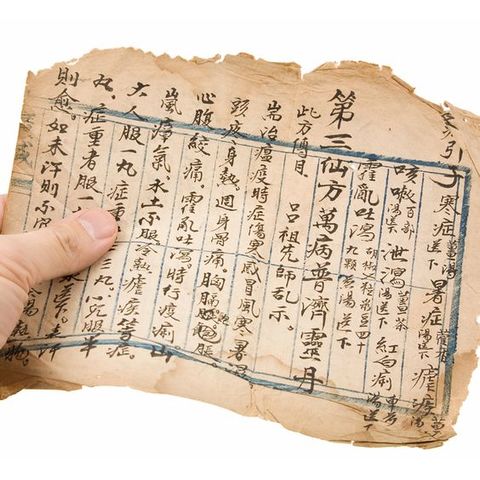 引子 寒症 薑湯送下 暑症 湯送下 瘧疾 薑湯
咳嗽 百部湯送下 泄瀉 薑茶湯送下 紅白痢 車前湯送下
霍亂吐瀉 九顆 湯送下
第三仙方萬病普濟靈丹
此方傳自 呂祖先師乩示。
耑治瘟疫時症傷寒感冒風寒暑濕
頭疼身熱。週身骨痛。胸膈飽脹
心腹絞痛。霍亂吐瀉。時行疫痢山
嵐瘴氣水土不服冷熱瘧疾等症。
大人服一丸症重 三丸小兒服半
丸。症重者服一
則愈。如未汗則不